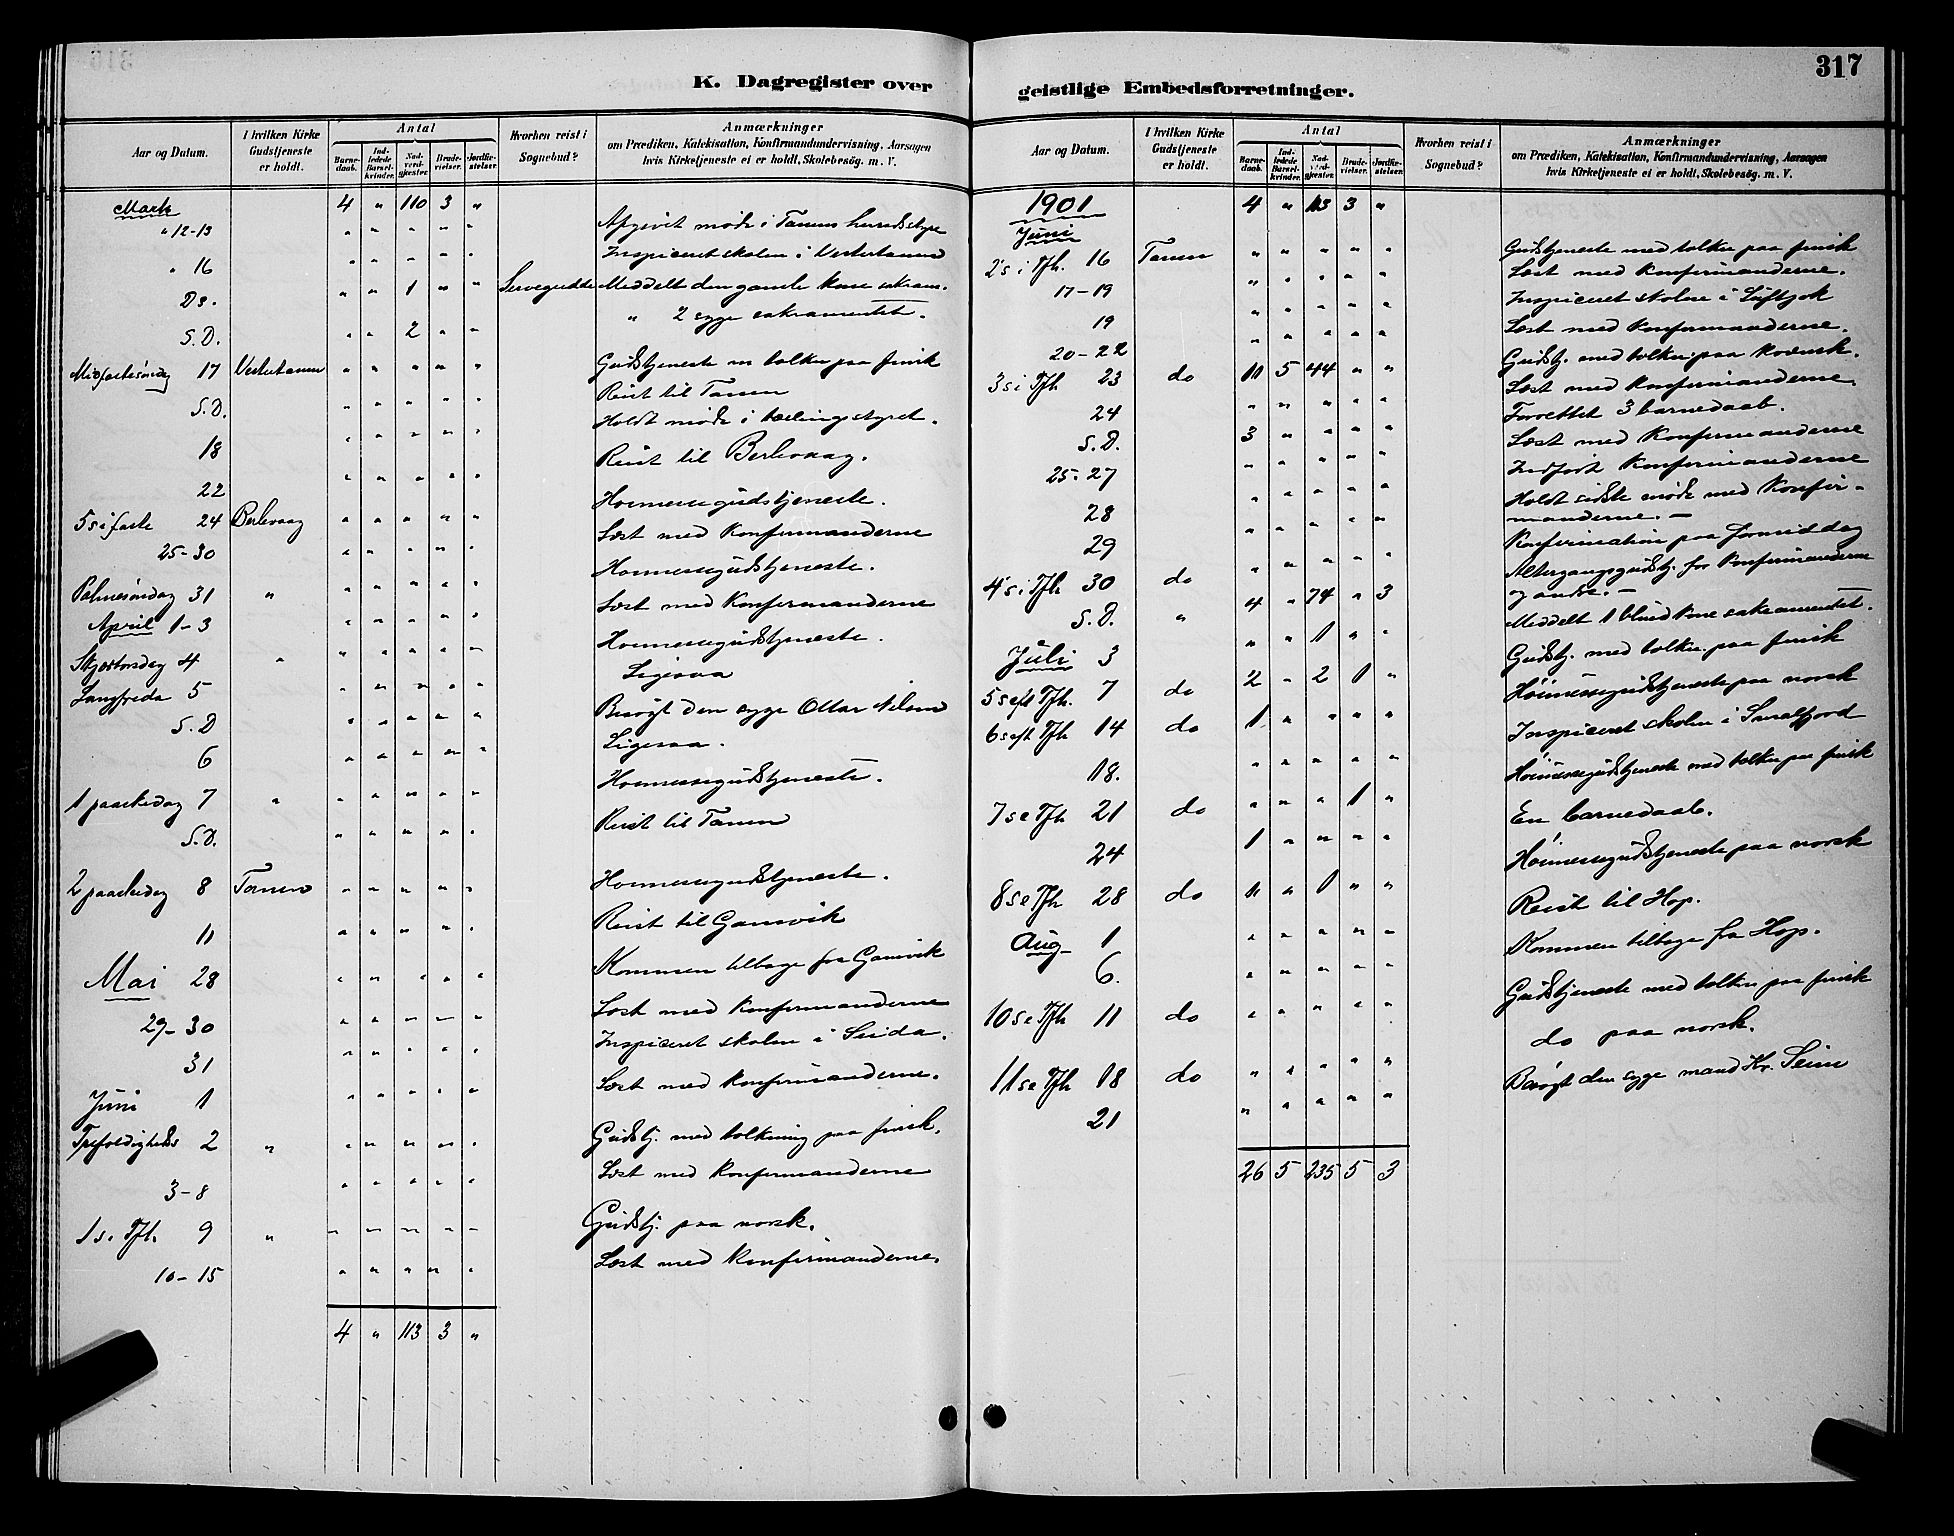 317
K. Dagregister over
geistlige Embedsforretninger.
Aar og Datum.
I hvilken Kirke Gudstjeneste er holdt.
Antal
Barne-daab.
Ind-ledede Barsel-kvinder.
Nad-verd-gjester.
Brude-vielser.
Jordfæ-stelser.
Hvorhen reist i Sognebud?
Anmærkninger
om Prædiken, Katekisation, Konfirmandundervisning, Aarsagen
hvis Kirketjeneste ei er holdt, Skolebesøg. m. V.
Marts 4 " 110 3 "
" 12-13 " " " " " møde i Tanens herredsstyre
" 16 " " " " " Inspiceret skolen i Vestertanen
Ds. " " 1 " " Meddelt den gamle kone sakram.
S.D. " " 2 " " " 2 syge sakramentet.
17 Vestertanen " " " " " Gudstjeneste m tolken paa finsk
S.D. " " " " " Reist til Tanen
18 " " " " " Holdt møde i
22 " " " " " Reist til Berlevaag.
5 s i faste 24 Berlevaag " " " " " Hoimessegudstjeneste.
25-30 " " " " " Læst med Konfirmanderne
Palmesøndag 31 " " " " " " Hoimessegudstjeneste.
April 1-3 " " " " " Læst med Konfirmanderne
Skjærtorsdag 4 " " " " " " Hoimessegudstjeneste.
Langfreda 5 " " " " " Ligesaa
S.D " " " " " Besøgt den syge Ottar Nilsen
6 " " " " " Ligesaa.
1 paaskedag 7 " " " " " " Hoimessegudstjeneste.
S.D. " " " " " Reist til Tanen
2 paaskedag 8 Tanen " " " " " Hoimessegudstjeneste.
11 " " " " " Reist til Gamvik
Mai 28 " " " " " Kommen tilbage fra Gamvik
29-30 " " " " " Læst med Konfirmanderne
31 " " " " " Inspiceret skolen i Seida.
Juni 1 " " " " " Læst med Konfirmanderne.
Trefoldigheds 2 " " " " " " Gudstj. med tolkning paa finsk.
3-8 " " " " " Læst med Konfirmanderne
1 s. Tfh. 9 " " " " " " Gudstj. paa norsk.
10-15 " " " " " Læst med Konfirmanderne.
4 " 113 3 "
Aar og Datum.
I hvilken Kirke Gudstjeneste er holdt.
Antal
Barne-daab.
Ind-ledede Barsel-kvinder.
Nad-verd-gjester.
Brude-vielser.
Jordfæ-stelser.
Hvorhen reist i Sognebud?
Anmærkninger
om Prædiken, Katekisation, Konfirmandundervisning, Aarsagen
hvis Kirketjeneste ei er holdt, Skolebesøg. m. V.
1901 4 " 113 3 "
Juni
2 s i Tfh. 16 Tanen " " " " " Gudstjeneste med tolken paa finsk
17-19 " " " " " Læst med Konfirmanderne.
19 " " " " " Inspiceret skolen i Luftjok
20-22 " " " " " Læst med Konfirmanderne.
3 s i Tfh 23 do 11 5 44 " " Gudstj. med tolken paa kvænsk.
24 " " " " " Læst med Konfirmanderne.
S.D. 3 " " " " Forrettet 3 barnedaab.
25-27 " " " " " Læst med Konfirmanderne
28 " " " " " Indført Konfirmanderne
29 " " " " " Holdt sidste møde med Konfir-
manderne. -
4 s i Tfh 30 do " " " " " Konfirmation paa formiddag
S.D. " 4 " 74 " 3 Altergangsgudstj. for Konfirmanderne
og andre. -
Juli 3 " " 1 " " Meddelt 1 blind kone sakramentet.
5 s eft Tfh. 7 do 2 " 2 1 " Gudstj. med tolken paa finsk
6 s eft Tfh 14 do 1 " " " " Høimessegudstjeneste paa norsk
18. " " " " " Inspiceret skolen i Smalfjord
7 s e Tfh 21 do " " " 1 " Høimessegudstjeneste med tolken paa finsk
24 1 " " " " En barnedaab.
8 s e Tfh 28 do " " 1 " " Høimessegudstjeneste paa norsk
Aug 1 " " " " " Reist til Hop.
6. " " " " " Kommen tilbage fra Hop.
10 s e Tfh 11 do " " " " " Gudstjeneste med tolken paa finsk
11 s e Tfh 18 do " " " " " do paa norsk.
21 " " " " " Besøgt den syge mand Hr. Seim
26 5 235 5 3